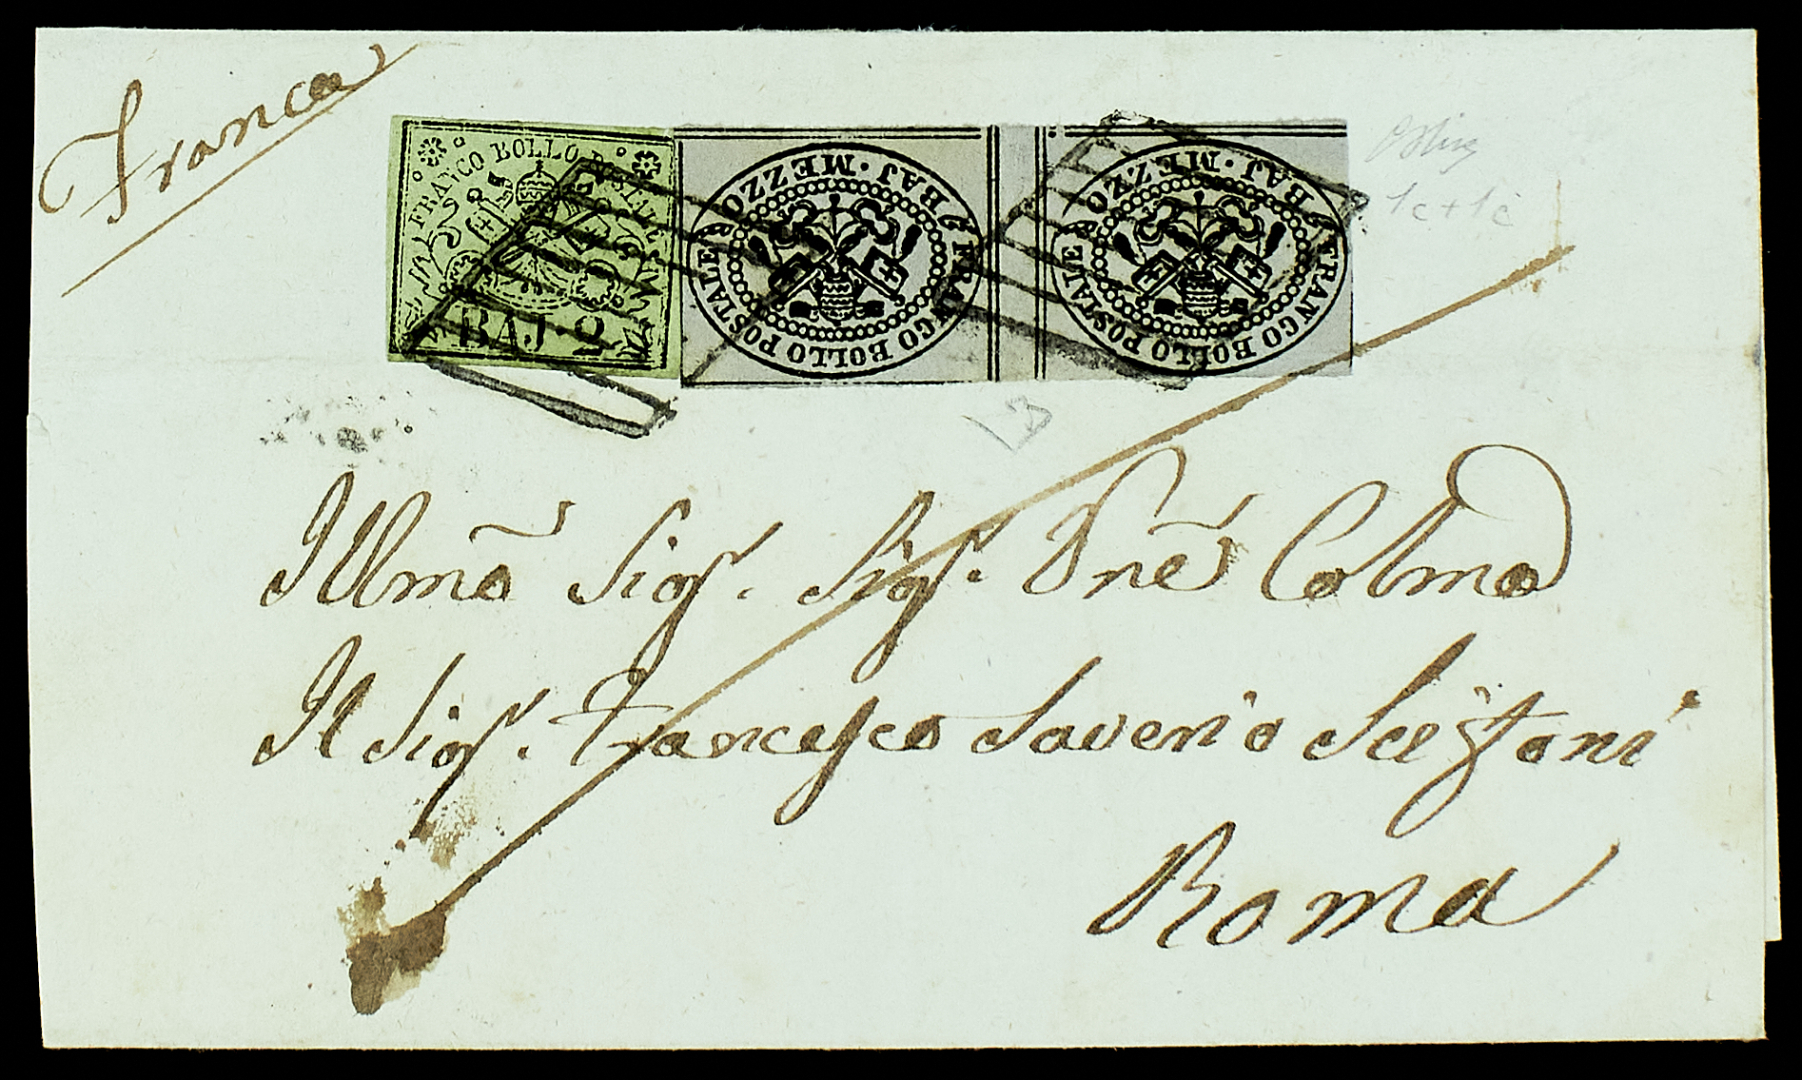 Franca
FRANCO BOLLO POSTALE
BAJ 2
BAJ. MEZZO
FRANCO BOLLO POSTALE
BAJ. MEZZO
FRANCO BOLLO POSTALE
1c+1c
Illmo Sigr. Sigr. Pne Colmo
Il Sigr. Francesco Saverio
Roma